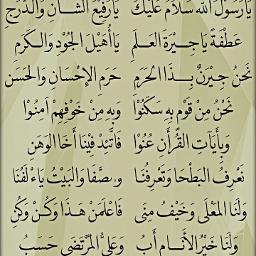 يَارَسُولَ اللهِ سَلَامٌ عَلَيْكَ يَارَفِيْعَ الشَّانِ وَالدَّرَجِ
عَطْفَةً يَا جِيْرَةَ الْعَلَمِ يَا أُهَيْلَ الْجُوْدِ وَالْكَرَمِ
نَحْنُ جِيْرَنٌ بِذَا الْحَرَمِ حَرَمِ الْإِحْسَانِ وَالْحَسَنِ
نَحْنُ مِنْ قَوْمٍ بِهِ سَكَنُوْا وَبِهِ مِنْ خَوْفِهِمْ اَمِنُوْا
وَبِأَيَاتِ الْقُرْأَنِ عُنُوْا فَاتَّئِدْ فِيْنَا أَخَا الْوَهَنِ
نَعْرِفُ الْبَطْحَا وَتَعْرِفُنَا وَالصَّفَا وَالْبَيْتُ يَاءْلَفُنَا
وَلَنَا الْمَعْلَى وَخَيْفُ مِنَى فَاعْلَمَنْ هَذَا وَكُنْ وَكُنِ
وَلَنَا خَيْرُ الْأَنَامِ أَبُ وَعَلِيُّ الْمُرْتَضَى حَسَبُ